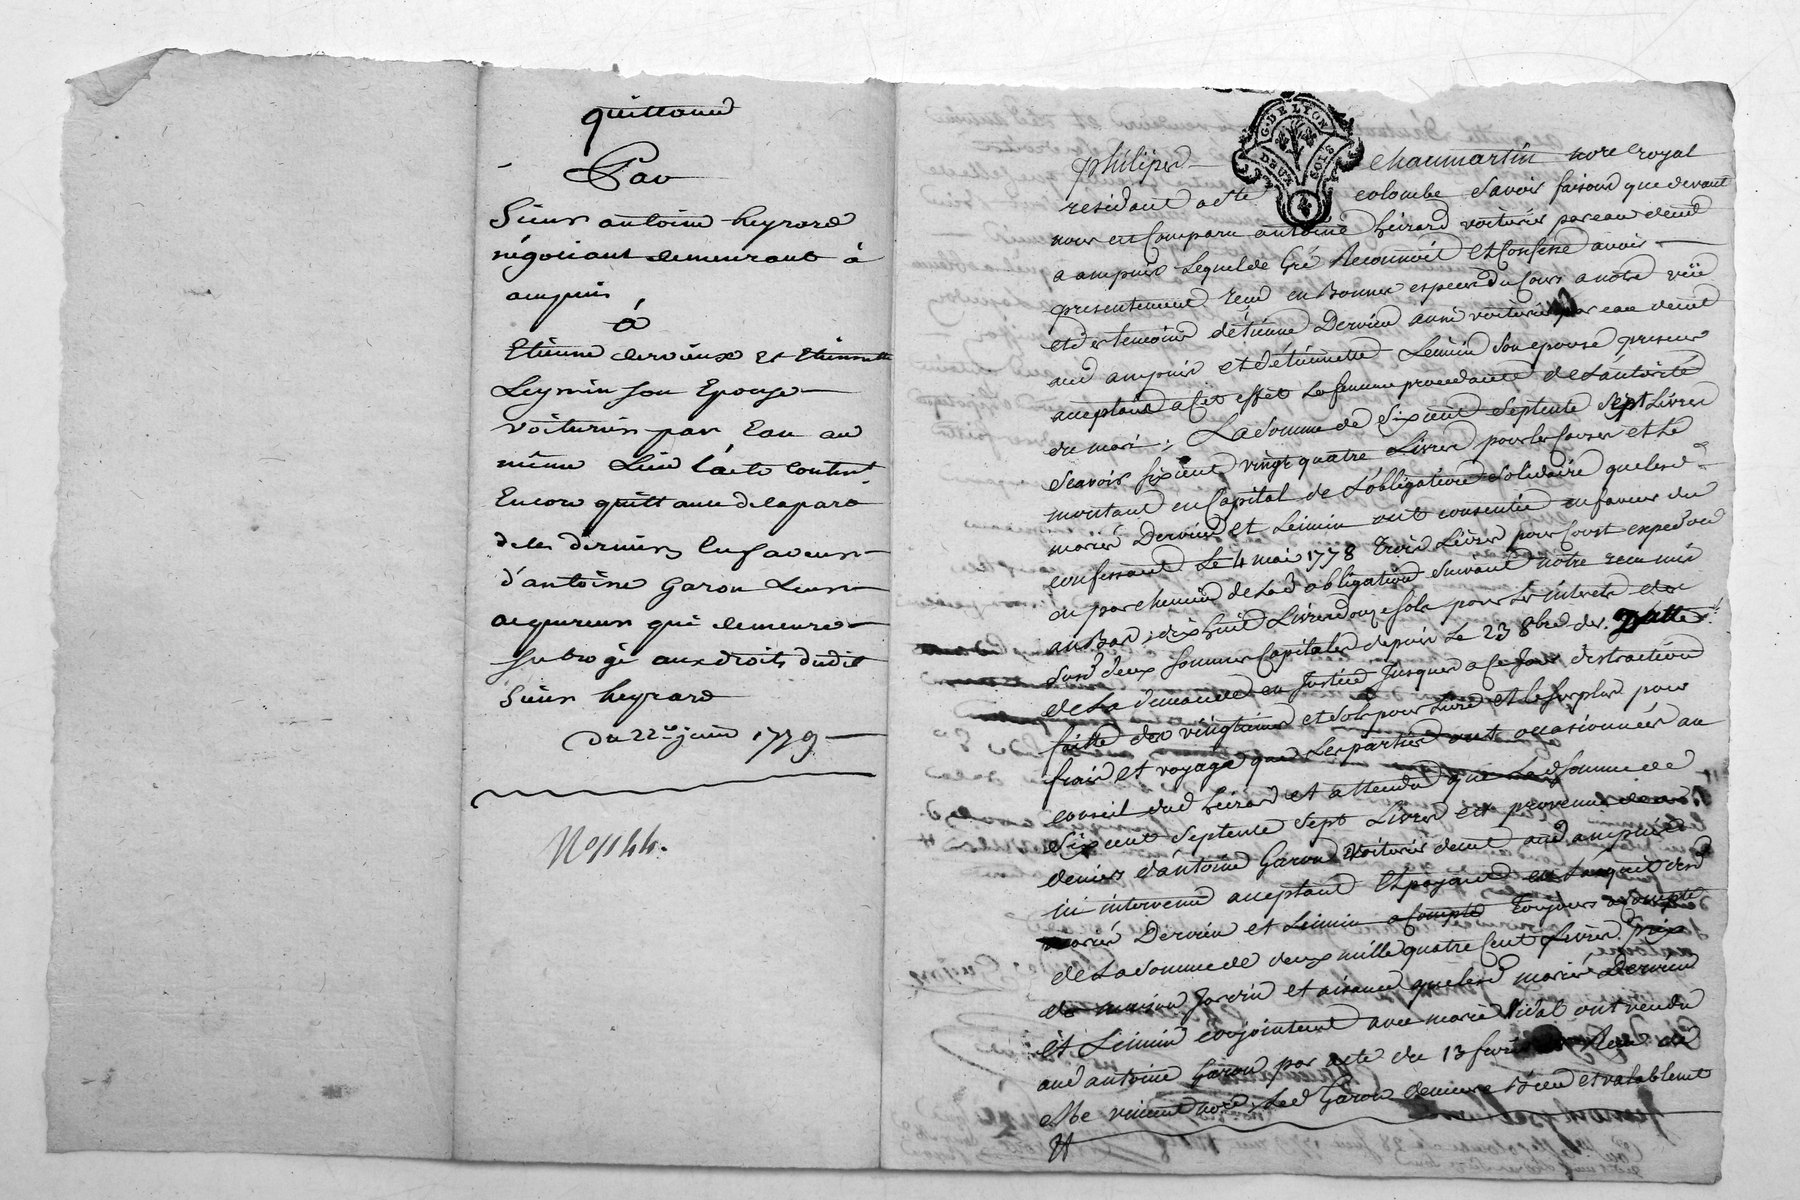 quittance
Par
Sieur antoine heyrard
négotiant demeurant à
ampuis
à
Etienne dervieux et Etiennette
Leymin son Epouse
voiturier par Eau au
même Lieu l'acte contient
Encore quittance de la part
de les derniers en faveur
d'antoine Garon Leur
acquereur qui demeure
subrogé aux droits dudit
Sieur heyrard
du 22e juin 1779
No 1144.
G. DE LYON
DEUX SOLS
philipes chaumartin nore royal
residant a ste colombe savoir faisons que devant
nous est Comparu antoine heirard voiturier par eau demt
a ampuis Lequel de Gré Reconnoit et Confesse avoir
presentement reçu en Bonnes especes du Cours a notre veüe
et des temoins d'étienne Dervieu aussi voiturier par eau demt
aud ampuis et d'étiennette Leimin son epouse presens
acceptans a cet effet La femme procedante de L'autorité
du mari : La somme de Six cent septente sept Livres
scavoir six cent vingt quatre Livres pour les Causes et Le
montant en Capital de L'obligation solidaire que lesd
mariés Dervieu et Leimin ont consentie en faveur du
confessant Le 4 mai 1778 trois Livres pour Coust expedon
en parchemin de Lad obligation suivant notre recu mis
au Bas, dix huit Livres douze sols pour Les interets des
susd deux sommes Capitales depuis Le 23 8bre der.
de La demande en Justice Jusques a ce Jour distraction
faitte des vingtiemes et sols pour Livre et le surplus pour
frais et voyages que Les parties ont occasionnées au
conseil dud heirard et attendu que Lad somme de
Six cent septente sept Livres est provenue des
deniers d'antoine Garon voiturier demt aud ampuis
ici intervenu acceptant et payant en L'acquit desd
mariés Dervieu et Leimin a Compte toujours a Compte
de La somme de deux mille quatre Cent Livres prix
de maison Jardin et aisances que lesd mariés Dervieu
et Leimin conjointemt avec marie vidal ont vendu
aud antoine Garon par acte du 13 fevrier Recu de
Me vincent nore, Led Garon demeure bien et valablemt